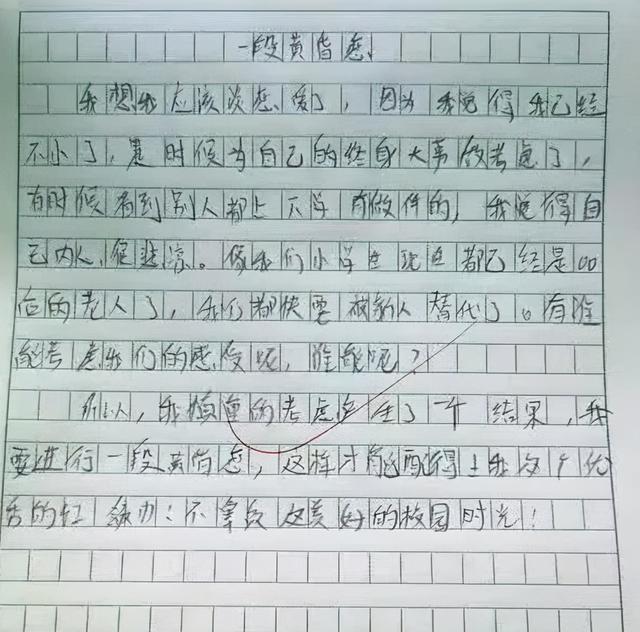 一段黄昏恋
我想我应该谈恋爱了，因为我觉得我已经
不小了，是时候为自己的终身大事做考虑了，
有时候看到别人都上下学有做伴的，我觉得自
己内人很悲凉。像我们小学生现在都已经是00
后的老人了，我们都快要被新人替代了。有谁
能考虑我们的感受呢，谁能呢？
所以，我慎重的考虑生了一个结果，我
要进行一段黄昏恋，这样才能配得上我这个优
秀的红领巾！不辜负这美好的校园时光！